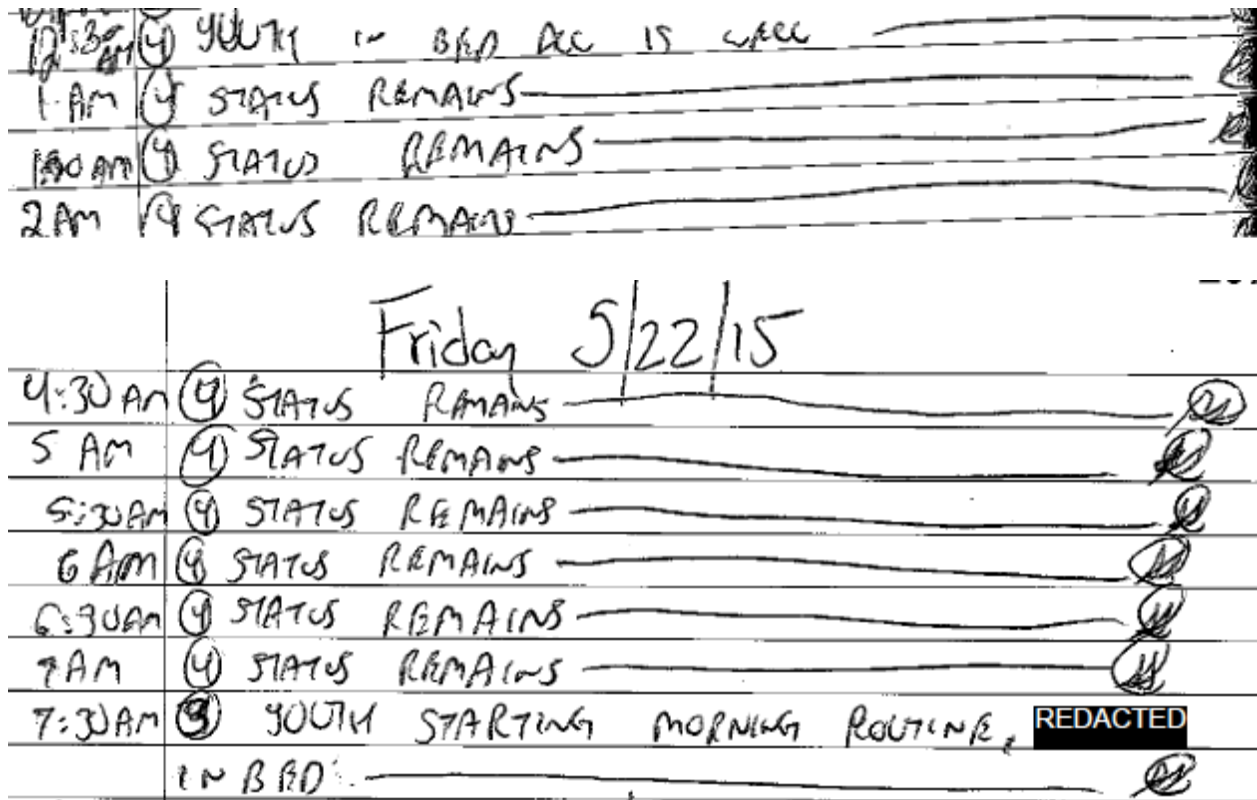 12:30 AM (4) YOUTH IN BED ALL IS WELL
1 AM (4) STATUS REMAINS
1:30 AM (4) STATUS REMAINS
2 AM (4) STATUS REMAINS
Friday 5/22/15
4:30 AM (4) STATUS REMAINS
5 AM (4) STATUS REMAINS
5:30 AM (4) STATUS REMAINS
6 AM (4) STATUS REMAINS
6:30 AM (4) STATUS REMAINS
7 AM (4) STATUS REMAINS
7:30 AM (3) YOUTH STARTING MORNING ROUTINE, REDACTED
IN BED.